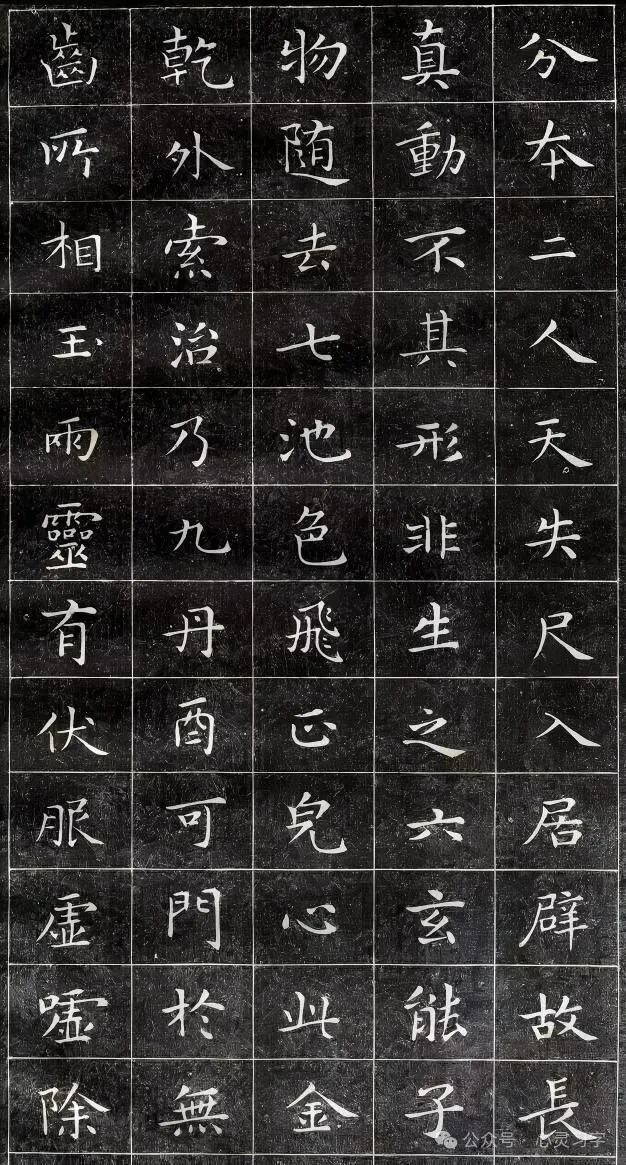 分本二人天失尺入居辟故長
真動不其形非生之六玄能子
物随去七池色飛正皃心此金
乾外索治乃九丹酉可門於無
齒所相玉雨靈有伏服虚嘘除
公众号·心灵习字